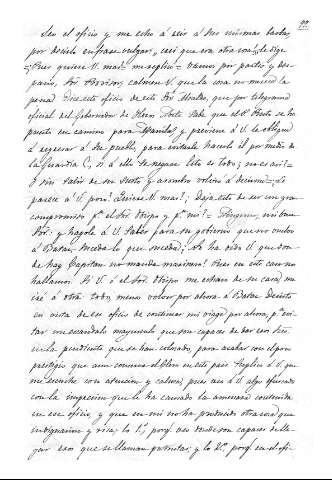 leer el oficio y me echo á reir á dos mismas barbas,
por decirlo en frase vulgar, creí que era otra cosa, le dije
Pues quiere V. mas? me replicó = Vamos por partes y des-
pacio, Sor. Provisor, calmese V. que la cosa no merece la
pena! Dice este oficio de este Sor Alcalde, que por telegrama
oficial del Gobernador de Ilocos Norte sabe que el P. se ha
puesto en camino para Manila, y previene á V. le obligue
á regresar á su pueblo, para evitarle hacerlo él por medio de
la Guardia C., si á ello se negare. Esto es todo; no es así? =
Y sin salir de su susto y asombro volvió á decirme = ¿Le
parece á V. poco? Quiere V. mas?; deja esto de ser un gran
compromiso pª. el Sor Obispo y pª. mi? = Ninguno, mi buen
Sor. y hagale á V. saber para su gobierno que no vuelvo
á Batac, suceda lo que suceda; ¿No ha oido V. que don-
de hay Capitan no manda marinero? Pues en este caso nos
hallamos. Si V. ó el Sor. Obispo me echaran de su casa, me
iré á otra todo, menos volver por ahora á Batac. Desisto
en vista de ese oficio de continuar mi viage por ahora, pª. evi-
tar un escándalo mayusculo que son capaces de dar esos Sres.
en la pendiente que se han colocado, para acabar con el poco
prestigio que aun conserva el Clero en este pais. Suplico á V. que
me escuche con atencion y calma, pues veo á V. algo ofuscado
con la impresion que le ha causado la amenaza contenida
en ese oficio, y que en mi no ha producido otra cosa que
indignacion y risa; lo 1º, porqe. veo donde son capaces de lle-
gar esos que se llaman patriotas; y lo 2º, porqe. en el ofi-